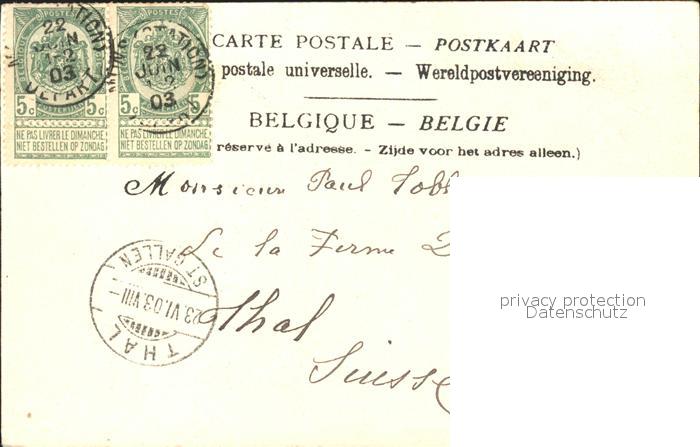 POSTES POSTERIJEN POSTES POSTERIJEN
(STATION)
22
JUIN
12
03
DEPART
(STATION)
22
JUIN
12
03
5c 5c 5c 5c
NE PAS LIVRER LE DIMANCHE NE PAS LIVRER LE DIMANCHE
NIET BESTELLEN OP ZONDAG NIET BESTELLEN OP ZONDAG
CARTE POSTALE — POSTKAART
postale universelle. — Wereldpostvereeniging.
BELGIQUE — BELGIE
réservé à l'adresse. - Zijde voor het adres alleen.)
Monsieur Paul
De la Ferme
Thal
Suisse
ST GALLEN
23.VI.03.VIII—
THAL
privacy protection
Datenschutz